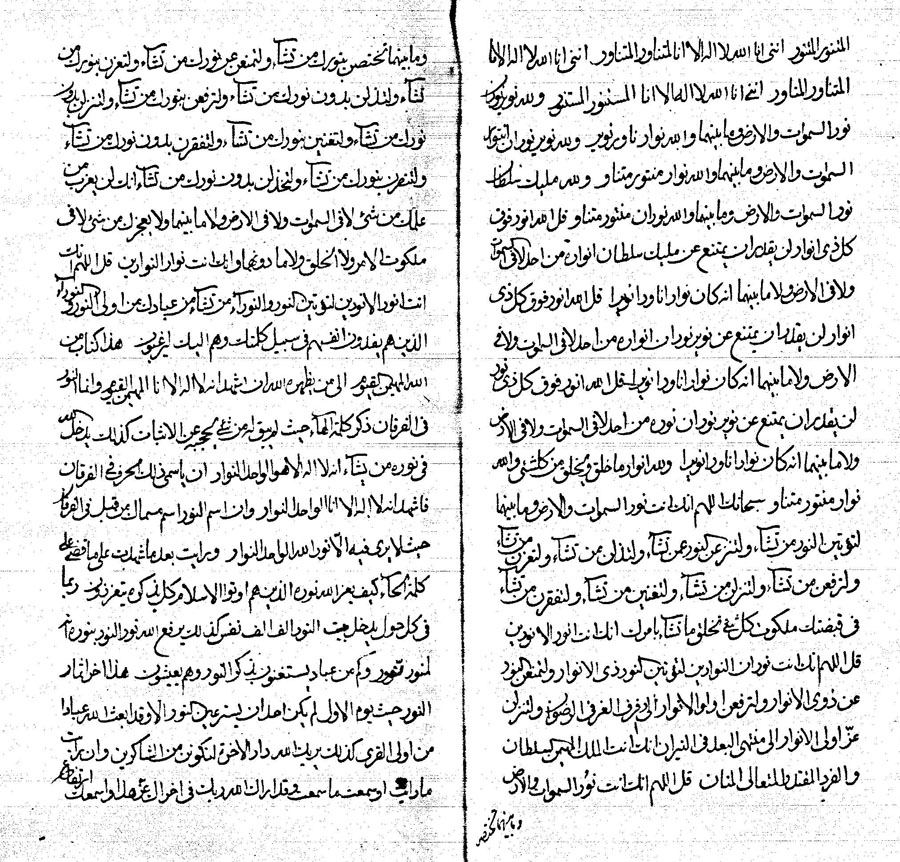 المتنور المتنور اننى انا الله لا اله الا انا المتناور المتناور اننى انا الله لا اله الا انا
المتناور المتناور اننى انا الله لا اله الا انا المستنور المستنور ولله نوير نوران
نور السموات والارض وما بينهما والله نوار ناور نوير ولله نوير نوران انوار
السموات والارض وما بينهما والله نوار منتور متناور ولله مليك سلطان
نور السموات والارض وما بينهما والله نوران منتور متناور قل الله انور فوق
كل ذى انوار لن يقدر ان يمتنع عن مليك سلطان انواره من احد لا فى السموات
ولا فى الارض ولا ما بينهما انه كان نوارا ناورا نويرا قل الله انور فوق كل ذى
انوار لن يقدر ان يمتنع عن نوير نوران انواره من احد لا فى السموات ولا فى
الارض ولا ما بينهما انه كان نوارا ناورا نويرا قل الله انور فوق كل ذى نور
لن يقدر ان يمتنع عن نوير نوران نوره من احد لا فى السموات ولا فى الارض
ولا ما بينهما انه كان نوارا ناورا نويرا ولله انوار ما خلق ويخلق من كلشئ والله
نوار منتور متناور سبحانك اللهم انك انت نور السموات والارض وما بينهما
لتؤتين النور من تشاء ولتنزعن النور عن تشاء ولتذلن من تشاء ولتعزن من تشاء
ولترفعن من تشاء ولتنزلن من تشاء ولتغنين من تشاء ولتفقرن من تشاء
فى قبضتك ملكوت كل شئ تخلق ما تشاء بامرك انك انت انور الانورين
قل اللهم انك انت نوران النوارين لتؤتين النور ذوى الانوار ولتمنعن النور
عن ذوى الانوار ولترفعن اولوا الانوار الى غرف الغرف فى الرضوان ولتنزلن
عن اولى الانوار الى منتهى البعد فى النيران انك انت الملك المهيمن السلطان
والفرد المقتدر المتعالى المنان قل اللهم انك انت نور السموات والارض
وما بينهما لتختصن
وما بينهما لتختصن بنورك من تشاء ولتمنعن عن نورك من تشاء ولتعزن بنورك من
تشاء ولتذلن بدون نورك من تشاء ولترفعن بنورك من تشاء ولتنزلن بدون
نورك من تشاء ولتغنين بنورك من تشاء ولتفقرن بدون نورك من تشاء
ولتنصرن بنورك من تشاء ولتخذلن بدون نورك من تشاء انك لن يعزب من
علمك من شئ لا فى السموات ولا فى الارض ولا ما بينهما ولا يعجزك من شئ لا فى
ملكوت الامر ولا الخلق ولا ما دونهما وانك انت نوار النوارين قل اللهم انك
انت انور الانورين لتؤتين النور والنوراء من تشاء من عبادك من اولى النور والنوراء
الذين هم يفدون انفسهم فى سبيل كلماتك وهم اليك ليرغبون هذا كتاب من
الله المهيمن القيوم الى من يظهره الله ان اشهد انه لا اله الا انا المهيمن القيوم وانما النور
فى الفرقان ذكر كلمة الهاء حيث لم يبق له من شئ يحجبه عن الاثبات كذلك يدخل الله
فى نوره من يشاء انه لا اله الا هو الواحد النوار ان يا سمى ذلك الحرف فى الفرقان
فاشهد انه لا اله الا انا الواحد النوار وان اسم النور اسم سماك من قبل فى الفرقان
حيث لا يرى فيه الا نور الله الواحد النوار ورايت بعد ما شهدت على ما قضى على
كلمة الحاء كيف يعز الله نوره الذين هم اوتوا الاسلام كل بذكره يتعززون وبما
فى كل حول يدخل بيت النور الف الف نفس كذلك يرفع الله نور النور بنوره انه
لمنور نوير وكم من عباد يستغنون بذكر النور وهم يعيشون هذا اخر اثمار
النور حيث يوم الاول لم يكن احد ان يستر عين النور الا وقد ابعث الله عبادا
من اولى القرى كذلك يريك الله دار الاخرة لتكونن من الشاكرين وان رايت
ما رايت او سمعت ما سمعت وقد اراك الله ربك فى اخراك عز هذا واسمعك ارتفاع